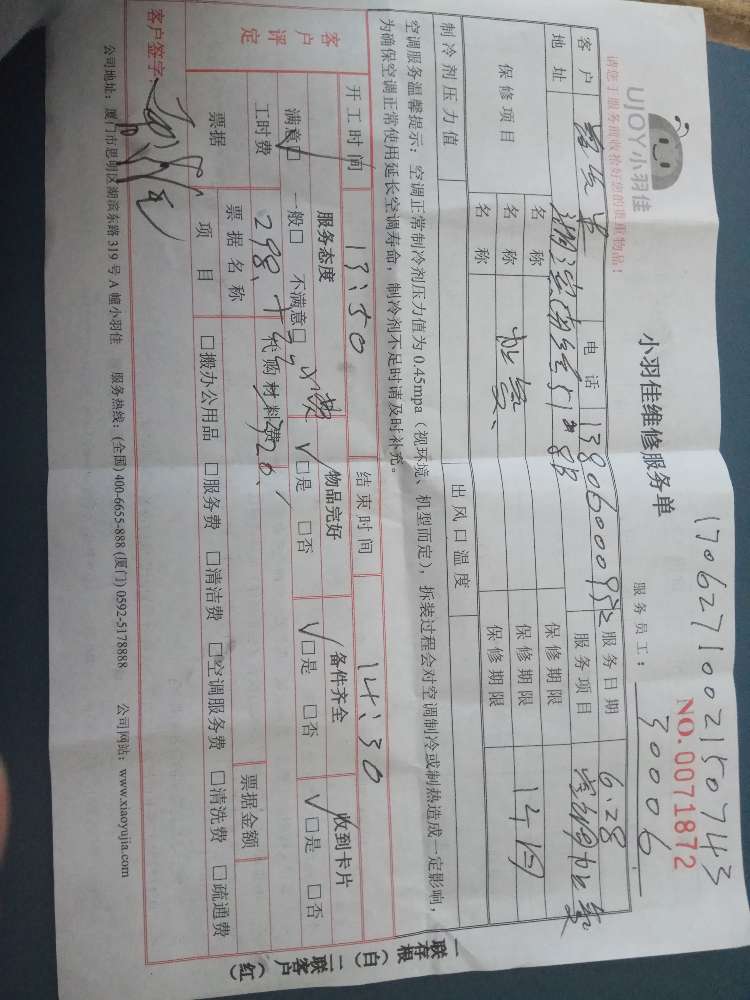 UJOY小羽佳
请您于服务前收拾好您的贵重物品！
小羽佳维修服务单
1706271002150743
NO.0071872
服务员工：30006
客户 电话 服务日期 6.28
地址 服务项目
保修项目 名称 保修期限
名称 保修期限 1个月
名称 保修期限
制冷剂压力值 出风口温度
空调服务温馨提示：空调正常制冷剂压力值为0.45mpa（视环境、机型而定），拆装过程会对空调制冷或制热造成一定影响，
为确保空调正常使用延长空调寿命，制冷剂不足时请及时补充。
开工时间 13:50 结束时间 14:30
客户评定 服务态度 物品完好 备件齐全 收到卡片
满意□ 一般□ 不满意□ □是 □否 □是 □否 □是 □否
工时费 298 代购材料费
票据 票据名称 票据金额
项目 □搬办公用品 □服务费 □清洁费 □空调服务费 □清洗费 □疏通费
客户签字：
公司地址：厦门市思明区湖滨东路319号A幢小羽佳 服务热线：(全国) 400-6655-888 (厦门) 0592-5178888 公司网站：www.xiaoyujia.com
一联存根（白）二联客户（红）